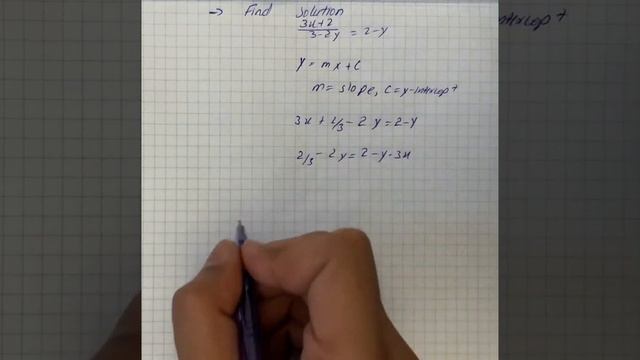 → Find Solution
3x+2
3-2y = 2-y
y = mx + c
m = slope, c = y-intercept
3x + 2/3 - 2y = 2-y
2/3 - 2y = 2-y-3x